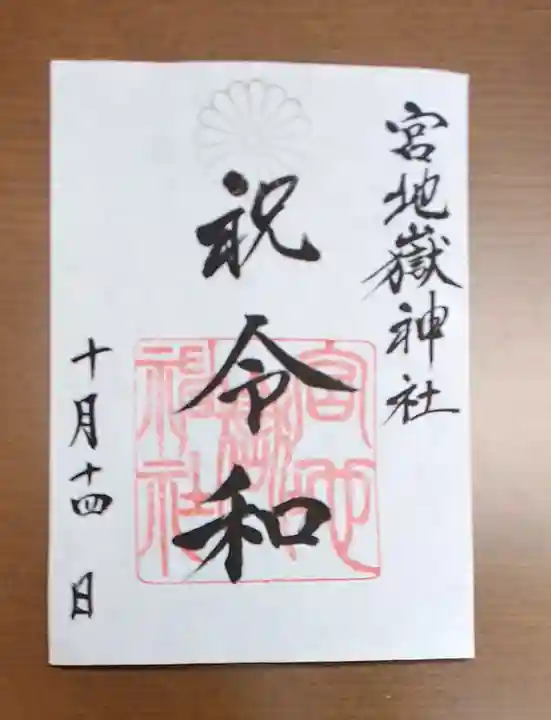 宮地嶽神社
祝令和
宮地嶽神社
十月十四日